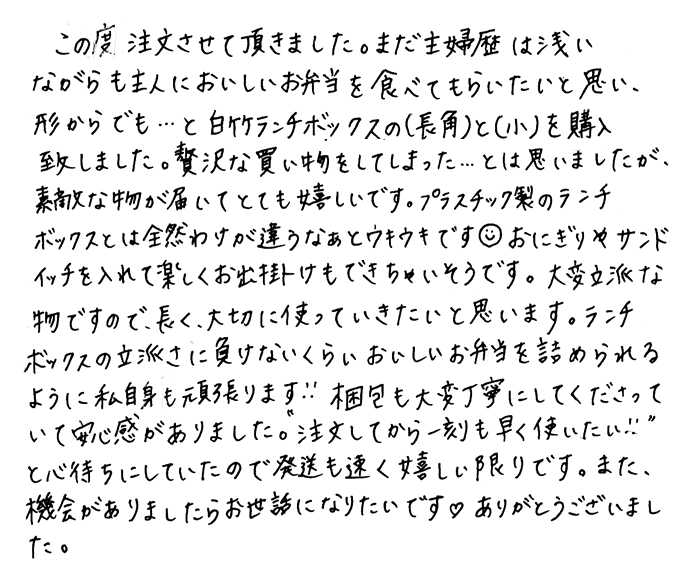 この度 注文させて頂きました。まだ主婦歴は浅い
ながらも主人においしいお弁当を食べてもらいたいと思い、
形からでも…と白竹ランチボックスの(長角)と(小)を購入
致しました。贅沢な買い物をしてしまった…とは思いましたが、
素敵な物が届いてとても嬉しいです。プラスチック製のランチ
ボックスとは全然わけが違うなぁとウキウキです☺おにぎりやサンド
イッチを入れて楽しくお出掛けもできちゃいそうです。大変立派な
物ですので、長く、大切に使っていきたいと思います。ランチ
ボックスの立派さに負けないくらいおいしいお弁当を詰められる
ように私自身も頑張ります!! 梱包も大変丁寧にしてくださって
いて安心感がありました。"注文してから一刻も早く使いたい!!"
と心待ちにしていたので発送も速く嬉しい限りです。また、
機会がありましたらお世話になりたいです♡ありがとうございまし
た。